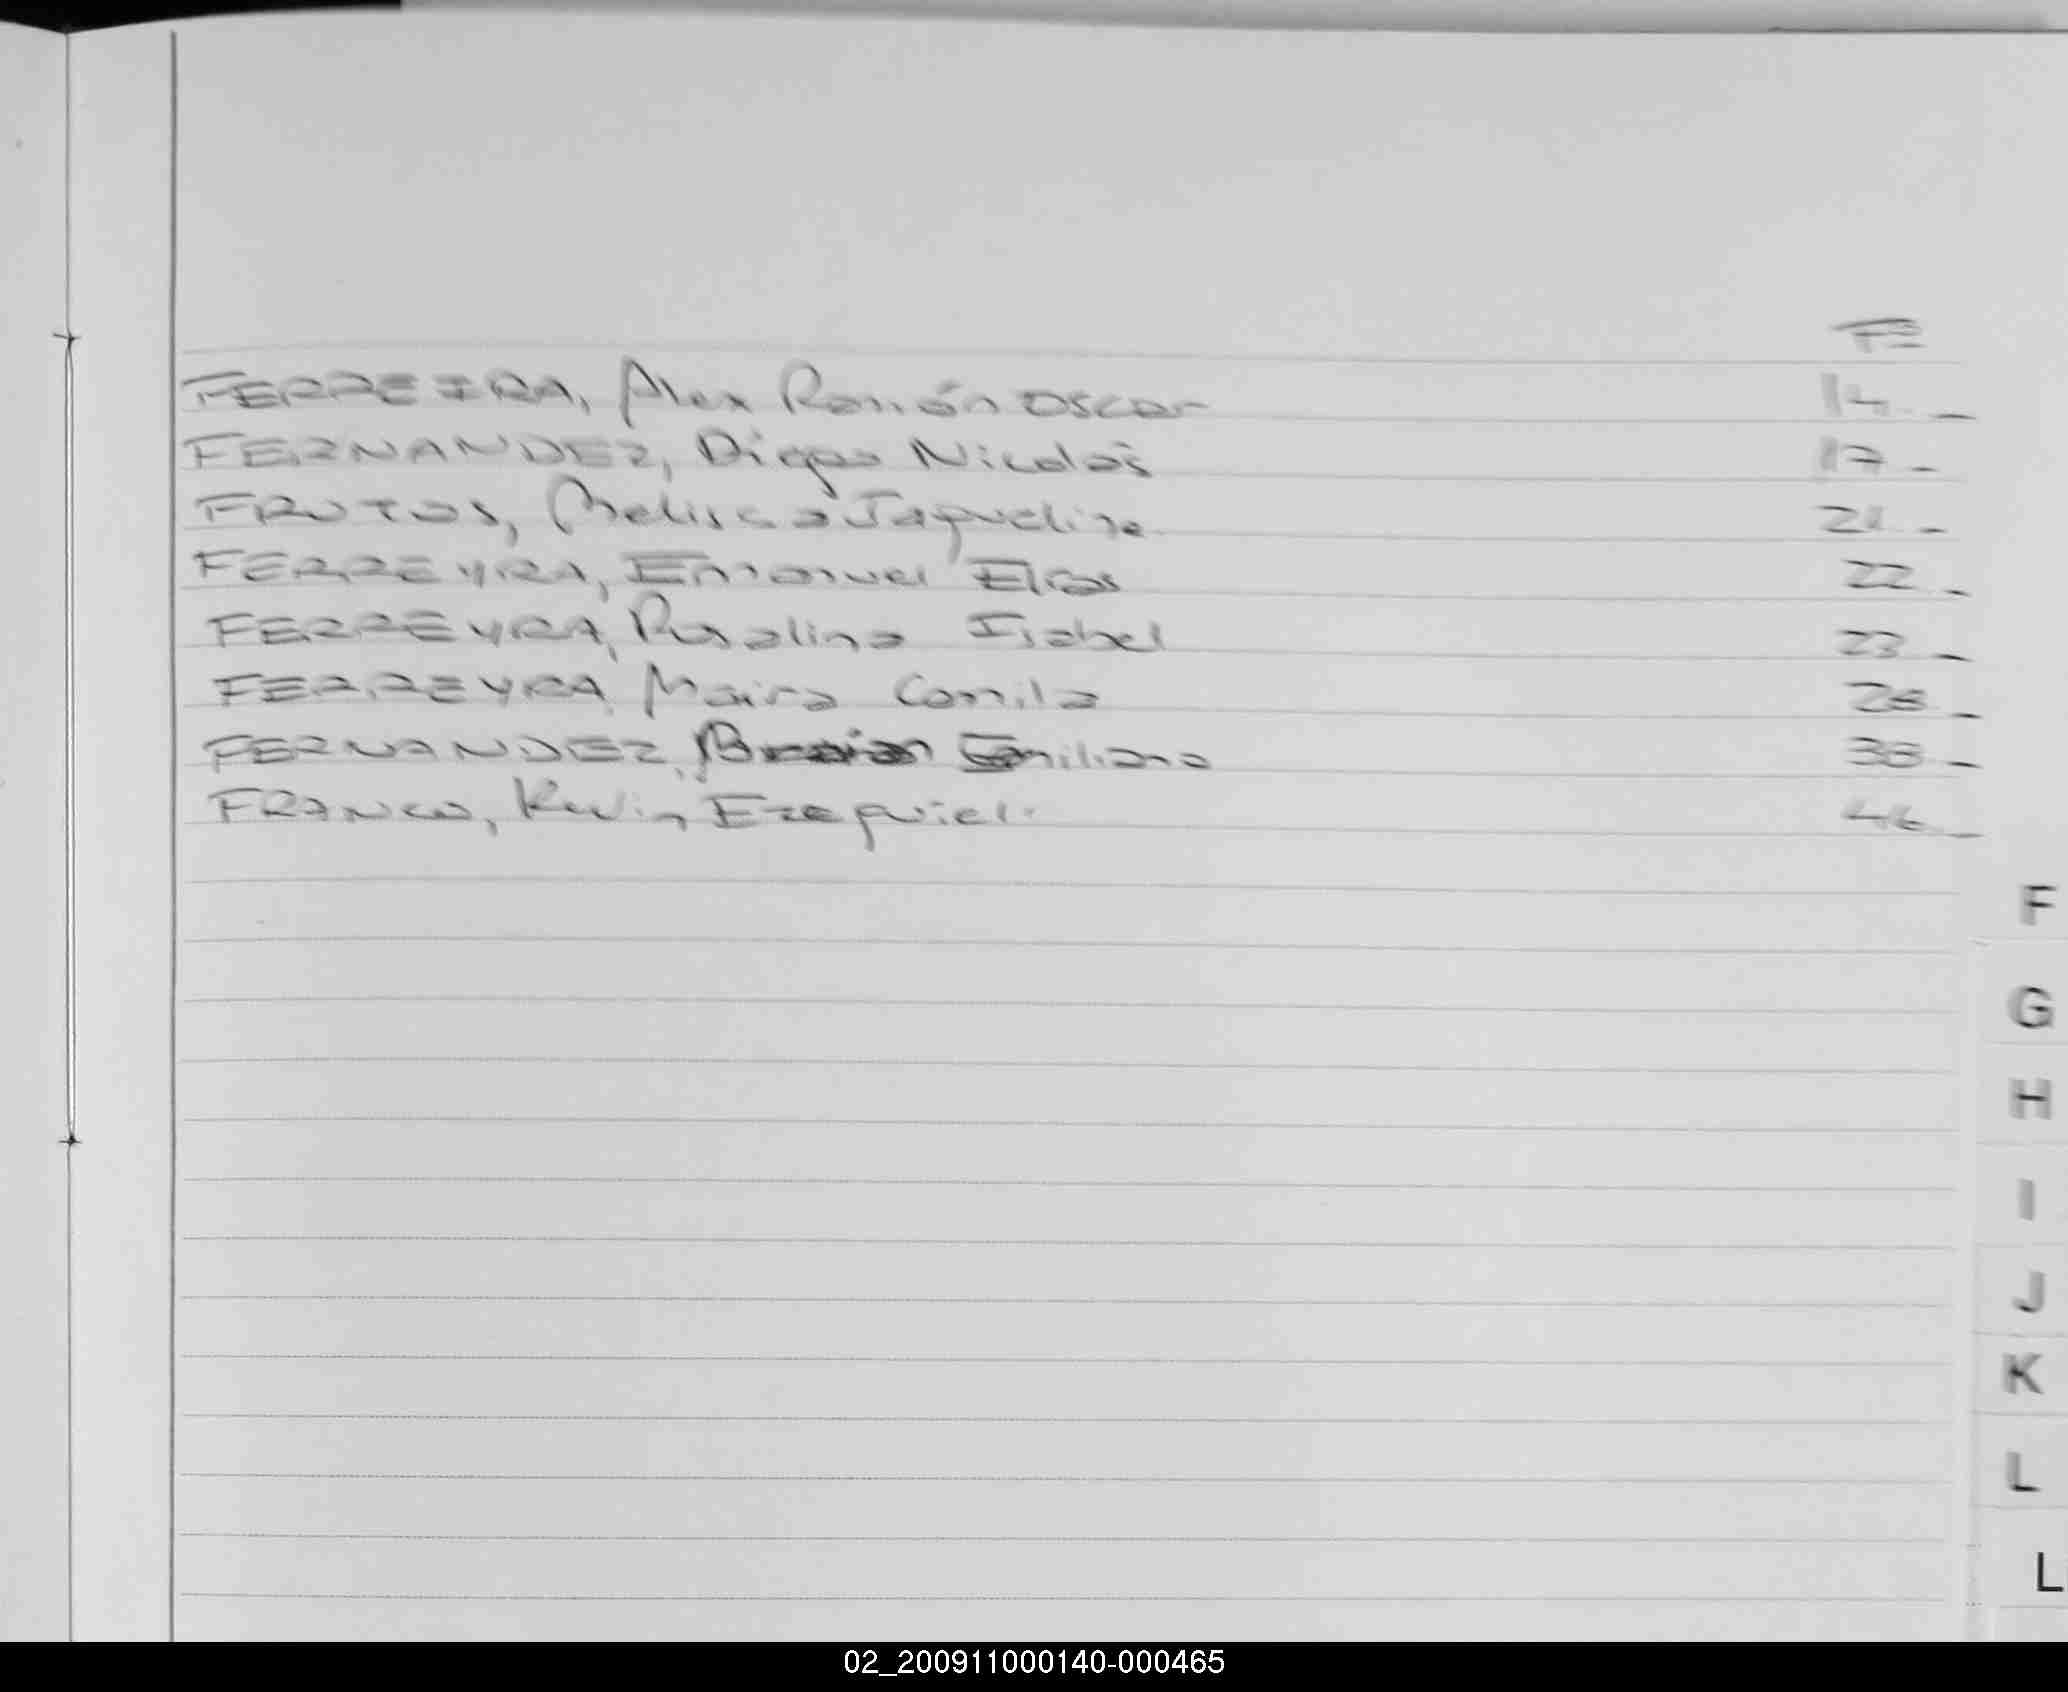 Fº
FERREIRA, Alex Ramón Oscar 14.-
FERNANDEZ, Diego Nicolás 17.-
FRUTOS, Melissa Jaqueline 21.-
FERREYRA, Emanuel Elias 22.-
FERREYRA, Rosalina Isabel 23.-
FERREYRA, Maira Camila -
FERNANDEZ, Braian Emiliano 38.-
FRANCO, Kevin Ezequiel. 46.-
F
G
H
I
J
K
L
L
02_200911000140-000465